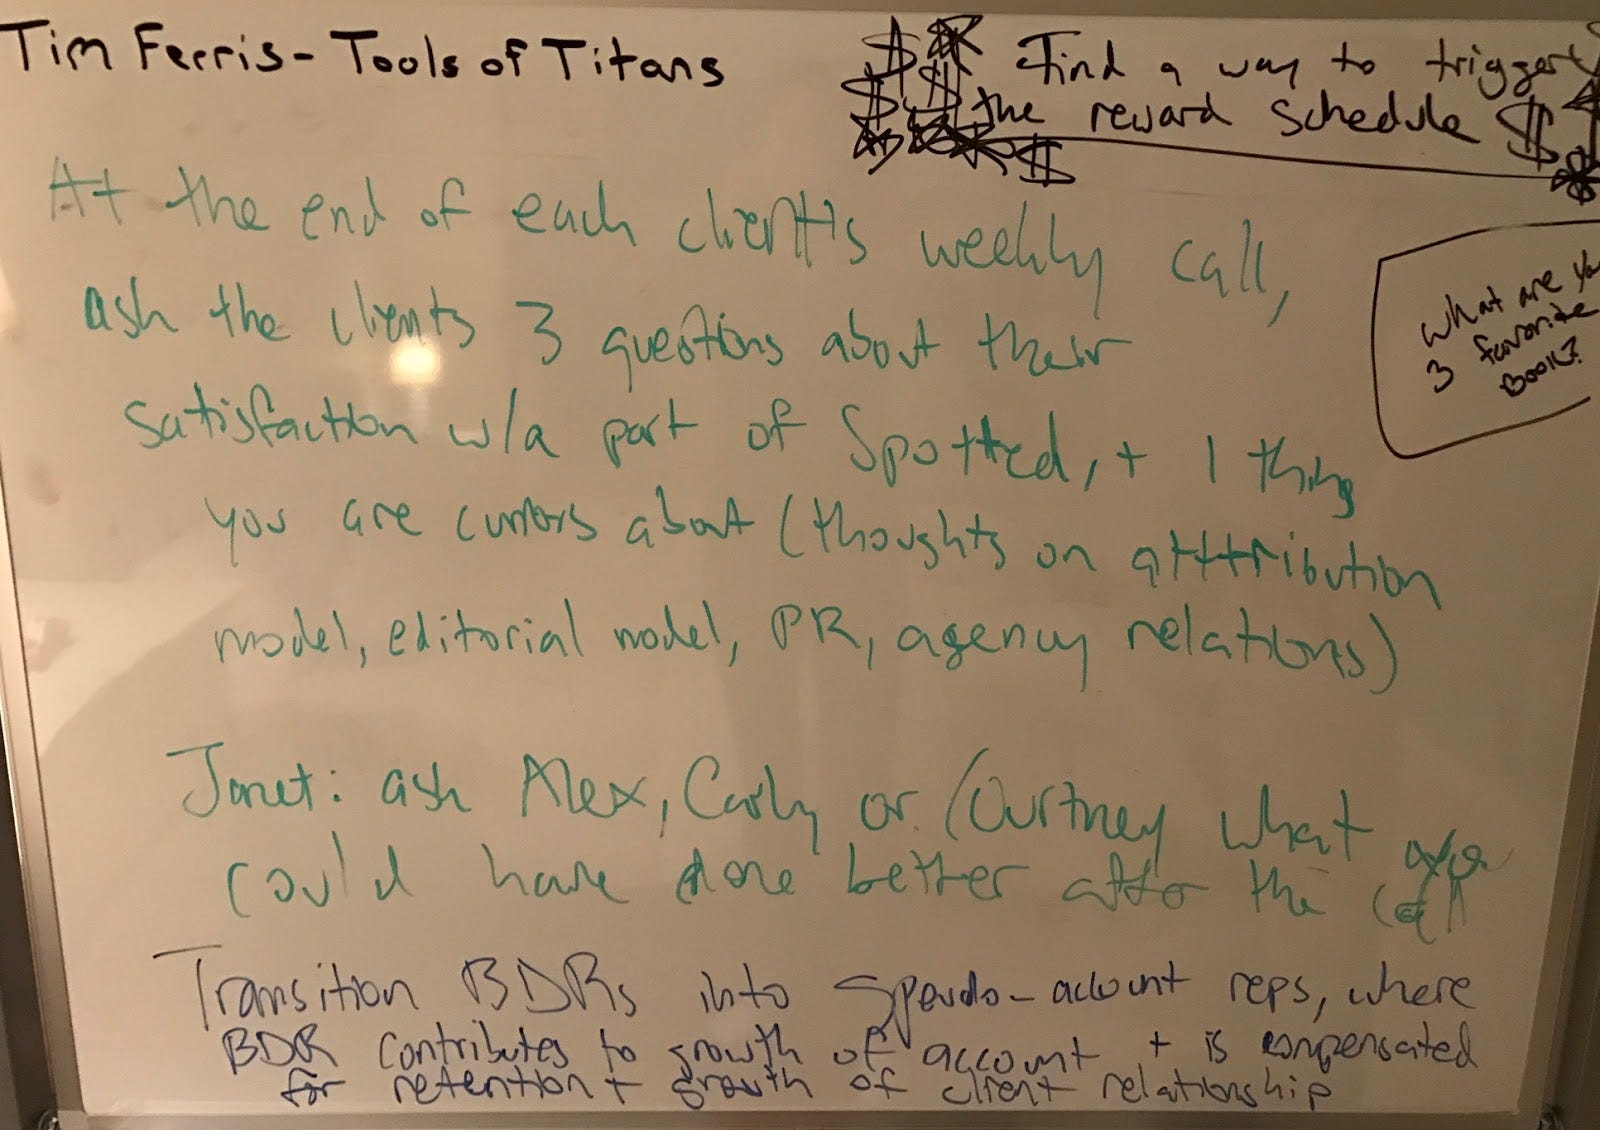 Tim Ferris - Tools of Titans
$ $ $ $ Find a way to trigger
the reward schedule $
$
At the end of each client's weekly call,
ask the clients 3 questions about their
satisfaction w/a part of Spotted, + 1 thing
you are curiors about (thoughts on atttribution
model, editorial model, PR, agency relations)
What are you
3 favorite
Book?
Janet: ask Alex, Carly or Courtney what
could have done better after the call
Transition BDRs into Speudo-account reps, where
BDR contributes to growth of account + is compensated
for retention + growth of client relationship